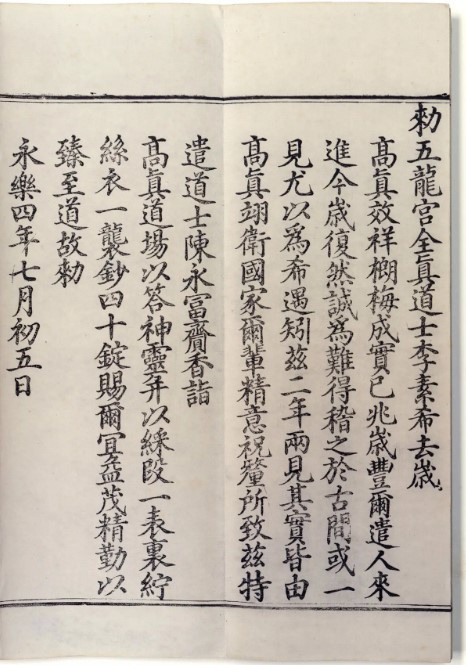 勑五龍宫全真道士李素希去歳
高真效祥榔梅成實已兆歳豐爾遣人來
進今歳復然誠為難得稽之於古間或一
見尤以為希遇矧兹二年兩見其實皆由
高真翊衛國家爾輩精意祝釐所致兹特
遣道士陳永富齎香詣
高真道場以答神靈并以綵段一表裏紵
絲衣一襲鈔四十錠賜爾宜益茂精勤以
臻至道故勑
永樂四年七月初五日